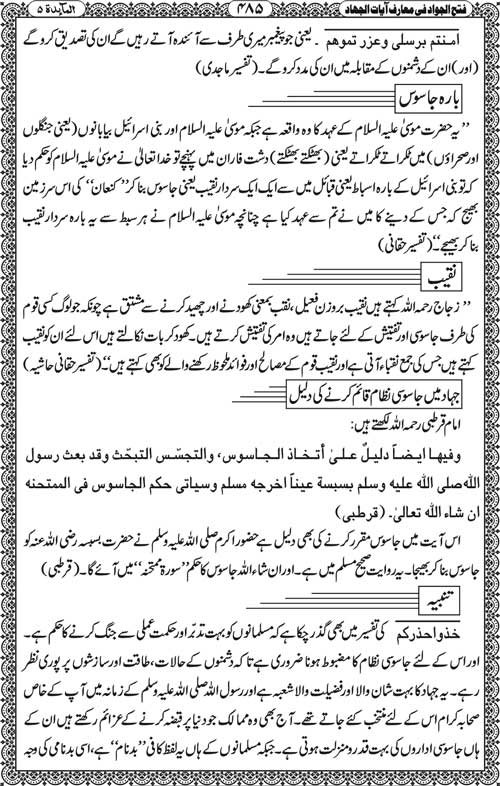 المآیدۃ ۵
۴۸۵
فتح الجواد فی معارف آیات الجهاد
اٰمنتم برسلی وعزر تموهم ۔ یعنی جو پیغمبر میری طرف سے آئندہ آتے رہیں گے ان کی تصدیق کروگے
(اور) ان کے دشمنوں کے مقابلہ میں ان کی مدد کروگے۔ (تفسیر ماجدی)
بارہ جاسوس
’’یہ حضرت موسیٰ علیہ السلام کے عہد کا وہ واقعہ ہے جبکہ موسیٰ علیہ السلام اور بنی اسرائیل بیابانوں (یعنی جنگلوں
اور صحراؤں) میں ٹکراتے ٹکراتے یعنی (بھٹکتے بھٹکتے) دشت فاران میں پہنچے تو خدا تعالیٰ نے موسیٰ علیہ السلام کو حکم دیا
کہ تو بنی اسرائیل کے بارہ اسباط یعنی قبائل میں سے ایک ایک سردار نقیب یعنی جاسوس بنا کر ’’کنعان‘‘ کی اس سرزمین
بھیج کہ جس کے دینے کا میں نے تم سے عہد کیا ہے چنانچہ موسیٰ علیہ السلام نے ہر سبط سے یہ بارہ سردار نقیب
بنا کر بھیجے‘‘۔ (تفسیر حقانی)
نقیب
’’زجاج رحمہ اللہ کہتے ہیں نقیب بروزن فعیل، نقب بمعنی کھودنے اور چھید کرنے سے مشتق ہے چونکہ جو لوگ کسی قوم
کی طرف جاسوسی اور تفتیش کے لئے جاتے ہیں وہ امر کی تفتیش کرتے ہیں۔ کھود کر بات نکالتے ہیں اس لئے ان کو نقیب
کہتے ہیں جس کی جمع نقباء آتی ہے اور نقیب قوم کے مصالح اور فوائد ملحوظ رکھنے والے کو بھی کہتے ہیں‘‘۔ (تفسیر حقانی حاشیہ)
جہاد میں جاسوسی نظام قائم کرنے کی دلیل
امام قرطبی رحمہ اللہ لکھتے ہیں:
وفیها ایضاً دلیلٌ علیٰ أتخاذ الجاسوس، والتجسّس التبحّث وقد بعث رسول
اللّٰه صلی اللّٰه علیه وسلم بسبسة عیناً اخرجه مسلم وسیاتی حکم الجاسوس فی الممتحنه
ان شاء اللّٰه تعالیٰ۔ (قرطبی)
اس آیت میں جاسوس مقرر کرنے کی بھی دلیل ہے حضور اکرم صلی اللہ علیہ وسلم نے حضرت بسبسہ رضی اللہ عنہ کو
جاسوس بنا کر بھیجا۔ یہ روایت صحیح مسلم میں ہے۔ اور ان شاء اللہ جاسوس کا حکم ’’سورۃ ممتحنہ‘‘ میں آئے گا۔ (قرطبی)
تنبیہ
خذواحذرکم کی تفسیر میں بھی گذر چکا ہے کہ مسلمانوں کو بہت تدبّر اور حکمت عملی سے جنگ کرنے کا حکم ہے۔
اور اس کے لئے جاسوسی نظام کا مضبوط ہونا ضروری ہے تا کہ دشمنوں کے حالات، طاقت اور سازشوں پر پوری نظر
رہے۔ یہ جہاد کا بہت شان والا اور فضیلت والا شعبہ ہے اور رسول اللہ صلی اللہ علیہ وسلم کے زمانہ میں آپ کے خاص
صحابہ کرام اس کے لئے منتخب کئے جاتے تھے۔ آج بھی وہ ممالک جو دنیا پر قبضہ کرنے کے عزائم رکھتے ہیں ان کے
ہاں جاسوسی اداروں کی بہت قدر و منزلت ہوتی ہے۔ جبکہ مسلمانوں کے ہاں یہ لفظ کافی ’’بدنام‘‘ ہے، اسی بدنامی کی وجہ